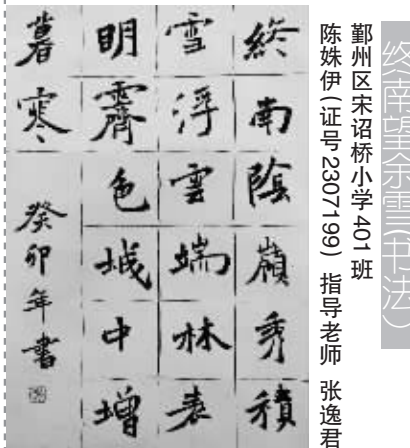 终南望余雪(书法)
鄞州区宋诏桥小学401班
陈姝伊(证号2307199) 指导老师 张逸君
終南陰嶺秀積
雪浮雲端林表
明霽色城中增
暮寒 癸卯年書